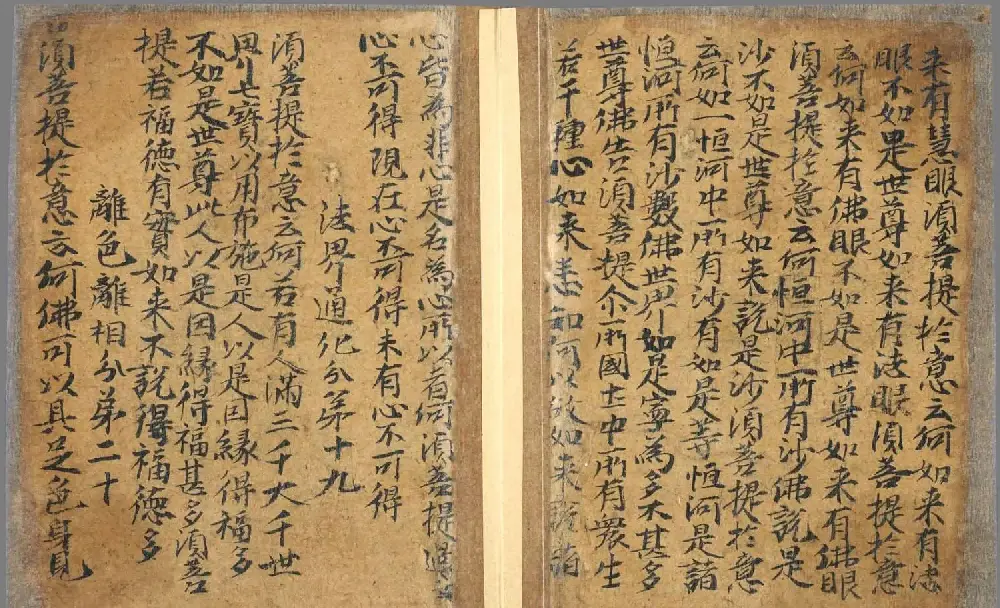 来有慧眼須菩提於意云何如来有法
眼不如是世尊如来有法眼須菩提於意
云何如来有佛眼不如是世尊如来有佛眼
須菩提於意云何恒河中所有沙佛說是
沙不如是世尊如来說是沙須菩提於意
云何如一恒河中所有沙有如是等恒河是諸
恒河所有沙數佛世界如是寧為多不甚多
世尊佛告須菩提尒所國土中所有衆生
若干種心如来悉知何以故如来說諸
心皆為非心是名為心所以者何須菩提過
心不可得現在心不可得未有心不可得
法界通化分第十九
須菩提於意云何若有人滿三千大千世
界七寶以用布施是人以是因緣得福多
不如是世尊此人以是因緣得福甚多須菩
提若福德有實如来不說得福德多
離色離相分第二十
須菩提於意云何佛可以具足色身見